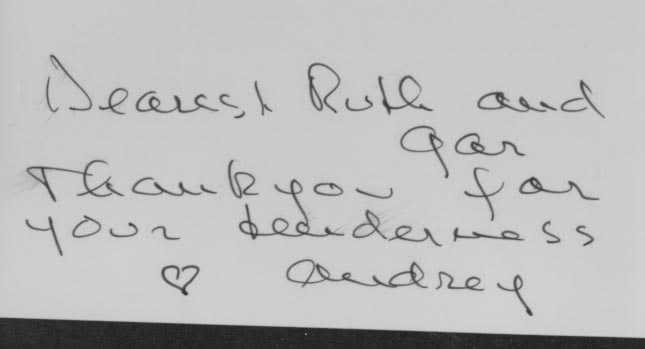 Dearest Ruth and
Gar
Thank you for
your tenderness
♡ Audrey